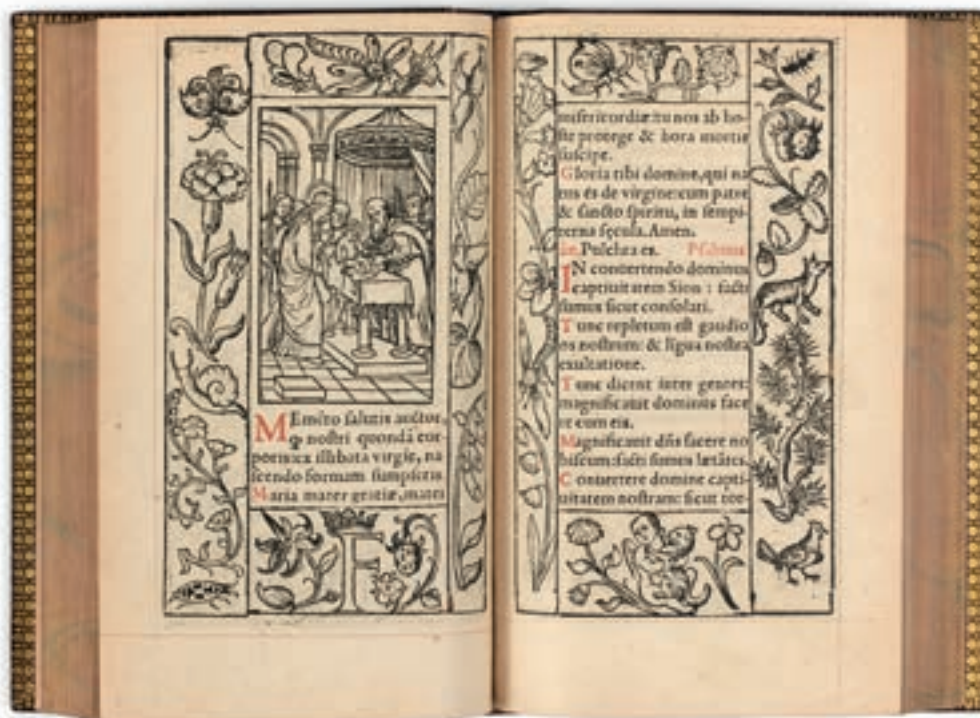 MEmēto salutis auctor,
ꝙ nostri quondā cor-
poris ex illibata virgīe, na
scendo formam sumpseris
Maria mater gratiæ, mater
F
misericordiæ: tu nos ab ho-
ste protege & hora mortis
suscipe.
Gloria tibi domine, qui na
tus es de virgine: cum patre
& sancto spiritu, in sempi-
terna sęcula. Amen.
Pulchra es. Psalmus
IN conuertendo dominus
captiuitatem Sion: facti
sumus sicut consolati.
Tunc repletum est gaudio
os nostrum: & līgua nostra
exultatione.
Tunc dicent inter gentes:
magnificauit dominus face
re cum eis.
Magnificauit dñs facere no
biscum: facti sumus lætātes.
Conuertere domine capti-
uitatem nostram: sicut tor-